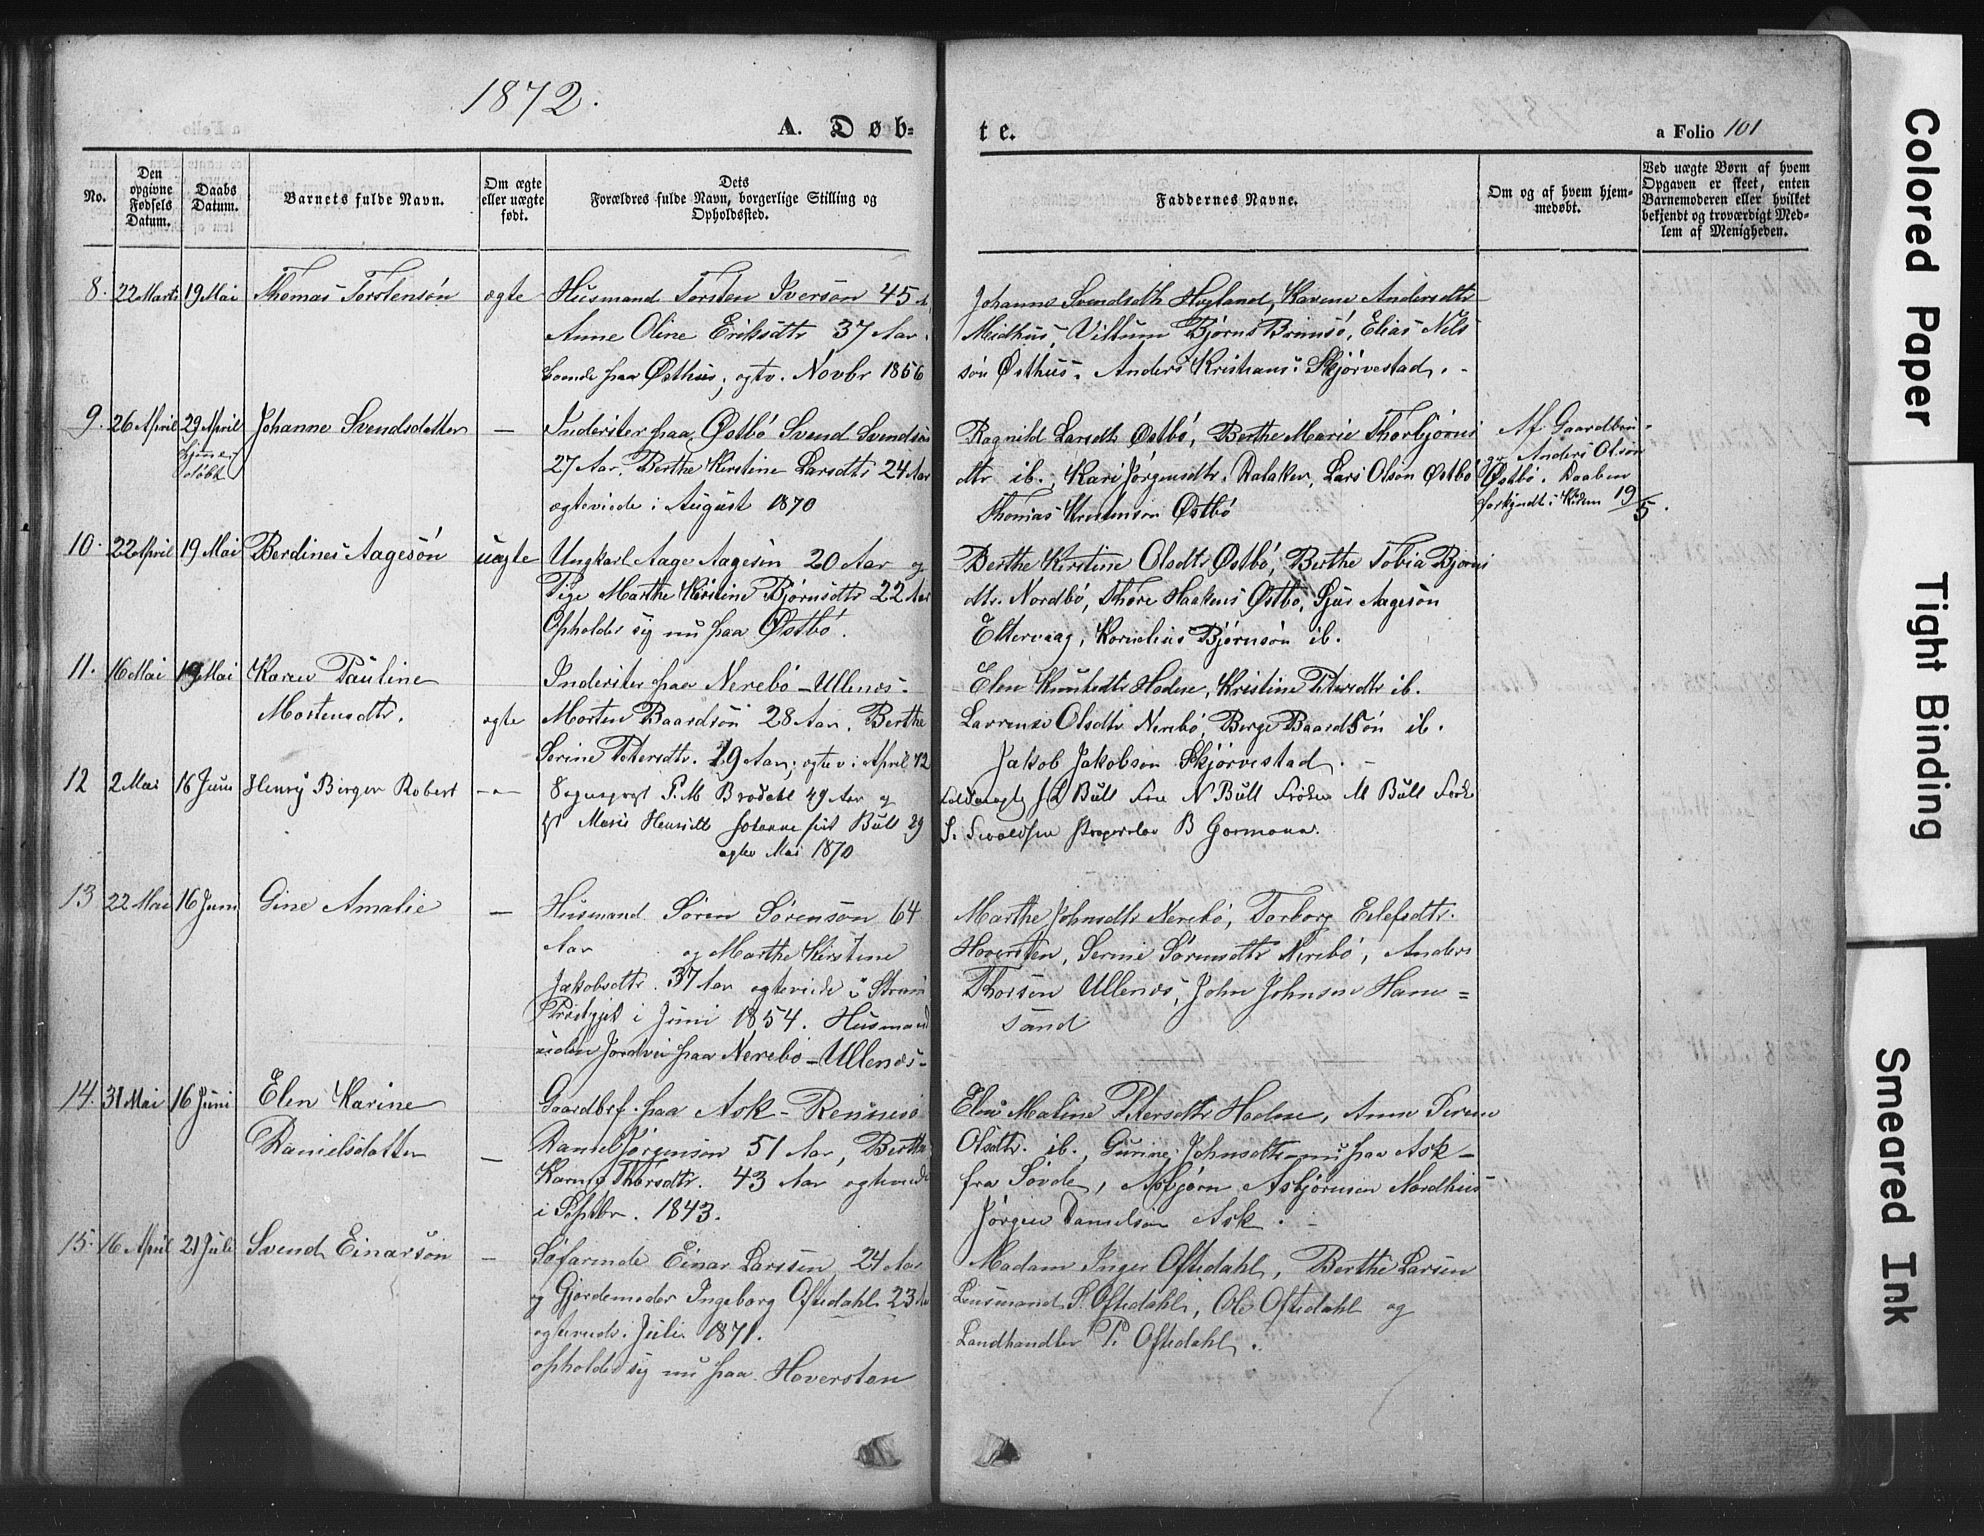 1872.
A. Døb-
te.
a Folio 101
No.
Den opgivne Fødsels Datum.
Daabs Datum.
Barnets fulde Navn.
Om ægte eller uægte født.
Dets Forældres fulde Navn, borgerlige Stilling og Opholdssted.
Faddernes Navne.
Om og af hvem hjemmedøbt.
Ved uægte Børn af hvem Opgaven er skeet, enten Barnemoderen eller hvilket bekjendt og troværdigt Medlem af Menigheden.
8. 22 Marts 19 Mai Thomas Torstensøn ægte Husmand Torsten Iversøn 45 A
Anne Oline Eriksdtr 37 Aar.
boende paa Østhus; egtv. Novbr 1856
Johanne Svendsdtr Hegland, Karene Andersdtr
Meidhus, Villum Bjørns Brimsø, Elias Nels
søn Østhus. Anders Kristians: Skjørvestad.
9. 26 April 29 April hjemmedøbt Johanne Svendsdatter — Inderster paa Østbø Svend Svendsøn
27 Aar. Berthe Kirstine Larsdtr 24 Aar
egteviede i August 1870
Ragnild Larsdtr Østbø, Berthe Marie Thorbjørns
dtr ib., Kari Jørgensdtr. Dalaker, Lars Olsøn Østbø
Thomas Østbø
Af Gaardbru-
ger Anders Olsøn
Østbø. Daaben
forkyndt i Kirken 19/5.
10. 22 April 19 Mai Berdines Aagesøn uægte Ungkarl Aage Aagesøn 20 Aar og
Pige Marthe Kirstine Bjørnsdtr 22 Aar
Opholder sig nu paa Østbø.
Berthe Kirstine Olsdtr Østbø, Berthe Tobia Bjørns
dtr. Nordbø, Thore Haakens Østbø, Sjur Aagesøn
Eltervaag, Kornelius Bjørnsøn ib.
11. 16 Mai 19 Mai Karen Pauline
Mortensdtr. ægte
Inderster paa Nerebø - Ullenes.
Morten Baardsøn 28 Aar. Berthe
Serine Petersdtr. 29 Aar; egtev i April 72
Elen Knutsdtr Hodne, Kristine Petersdtr ib.
Lavrense Olsdtr Nerebø, Berge Baardsøn ib.
Jakob Jakobsøn Skjørvestad.
12 2 Mai 16 Juni Henry Birger Robert — Sognepræst P. M. Brodahl 49 Aar og
Marie Henriette Johanne født Bull 29
egtev Mai 1870
J L Bull Fru N Bull Frøken M Bull Frøk
S. B Gormona.
13 22 Mai 16 Juni Gine Amalie — Husmand Søren Sørensøn 64
Aar og Marthe Kirstine
Jakobsdtr. 37 Aar egteviede i Strand
Præstgjeld i Juni 1854. Husmand
uden Jordvei paa Nerebø - Ullenes -
Marthe Johnsdtr Nerebø, Torborg Eilefsdtr.
Hoversten, Serine Sørensdtr Nerebø, Anders
Thorsen Ullenes, John Johnsen Ham=
sand
14. 31 Mai 16 Juni Elen Karine
Danielsdatter —
Gaardbr. paa Ask - Rennesø
Daniel Jørgensøn 51 Aar, Berthe
Karine Thorsdtr. 43 Aar egteviede
i Septbr. 1843.
Elen Maline Petersdtr Hodne, Anne Serine
Olsdtr. ib., Gurine Johnsdtr - nu paa Ask -
fra Søvde, Asbjørn Asbjørnsen Nordhus
Jørgen Danielsøn Ask.
15. 16 April 21 Juli Svend Einarsøn — Søfarende Einar Larsen 24 Aar
og Gjordemoder Ingeborg Oftedahl 23 Aar
egteviede i Juli 1871.
opholder sig nu paa Hoversten
Madam Inger Oftedahl, Berthe Larsen
Lensmand S. Oftedahl, Ole Oftedahl og
Landhandler P. Oftedahl.
Colored Paper
Tight Binding
Smeared Ink